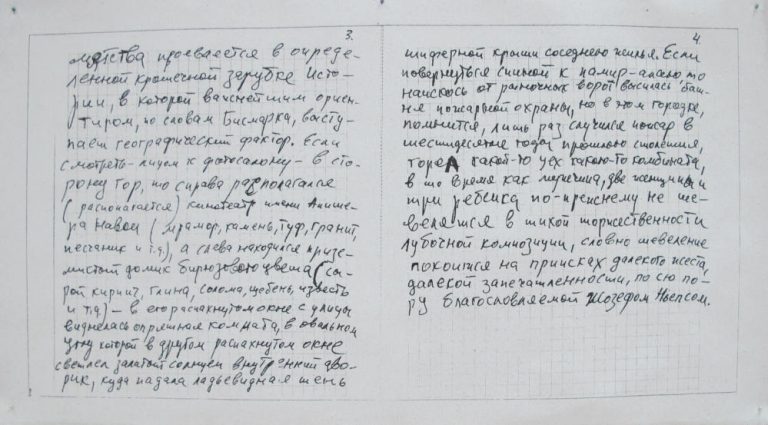 3.
детства проявляется в опреде-
ленной крошечной зарубке Исто-
рии, в которой важнейшим ориен-
тиром, по словам Бисмарка, высту-
пает географический фактор. Если
смотреть лицом к фотосалону - в сто-
рону гор, то справа располагался
(располагается) кинотеатр имени Алише-
ра Навои (мрамор, камень, туф, гранит,
песчаник и т.д.), а слева находился призе-
мистый домик бирюзового цвета (сы-
рой кирпич, глина, солома, щебень, известь
и т.д) - в его распахнутом окне с улицы
виднелась опрятная комната, в овальном
углу которой в другом распахнутом окне
светлел залитый солнцем внутренний дво-
рик, куда падала ладьевидная тень
4.
шиферной крыши соседнего жилья. Если
повернуться спиной к памир-алаю, то
наискось от рыночных ворот высилась баш-
ня пожарной охраны, но в этом городке,
помнится, лишь раз случился пожар в
шестидесятые годы прошлого столетия,
горел какой-то цех какого-то комбината,
в то время как мужчина, две женщины и
три ребенка по-прежнему не ше-
велятся в тихой торжественности
лубочной композиции, словно шевеление
покоится на приисках далекого жеста,
далекой запечатленности, по сю по-
ру благословляемой Жозефом Ньепсом.